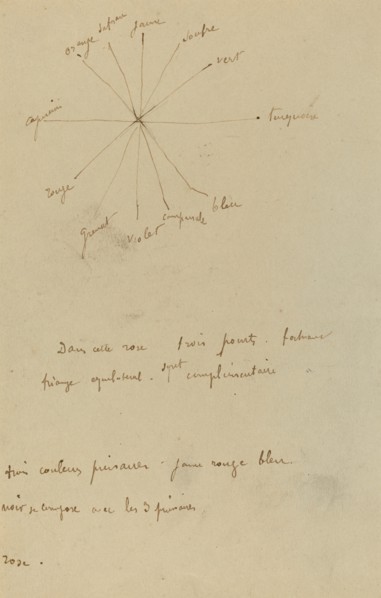 orange safran jaune soufre
vert
capucine turquoise
rouge
grenat violet campanule bleu
Dans cette rose trois points formant
triange equilateral. sont complimentaire
trois couleurs primaires. jaune rouge bleu.
noir se compose avec les 3 primaires
rose.